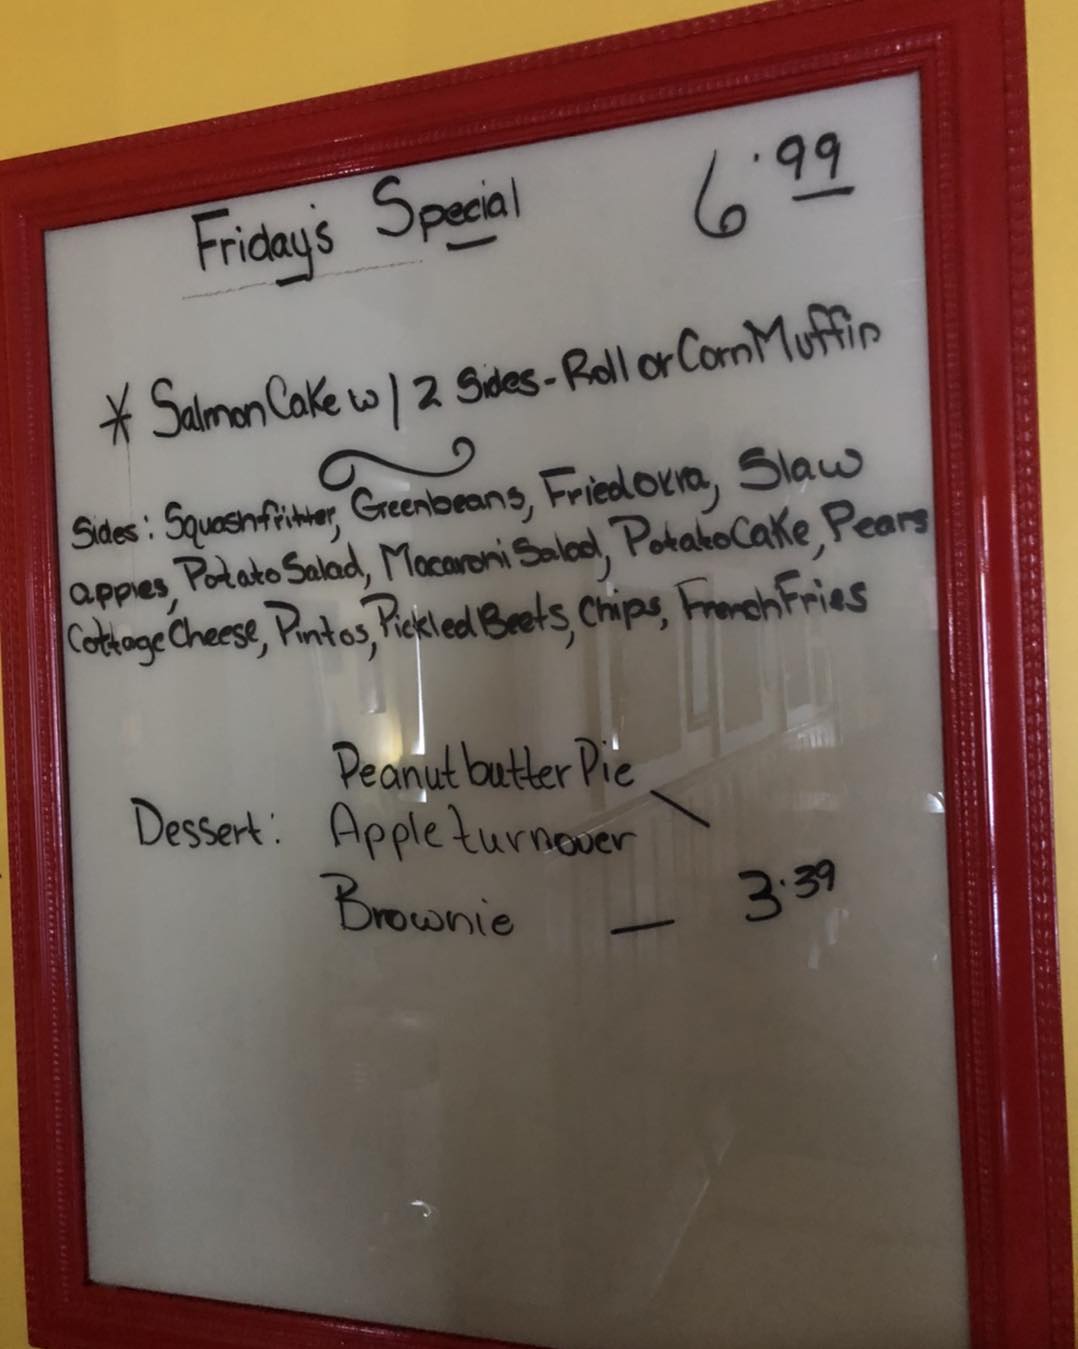 Friday's Special 6.99
* Salmon Cake w/ 2 Sides - Roll or Corn Muffin
Sides: Squash fritter, Greenbeans, Fried Okra, Slaw
apples, Potato Salad, Macaroni Salad, Potato Cake, Pears
Cottage Cheese, Pintos, Pickled Beets, Chips, French Fries
Peanut butter Pie
Dessert: Apple turnover
Brownie — 3.39